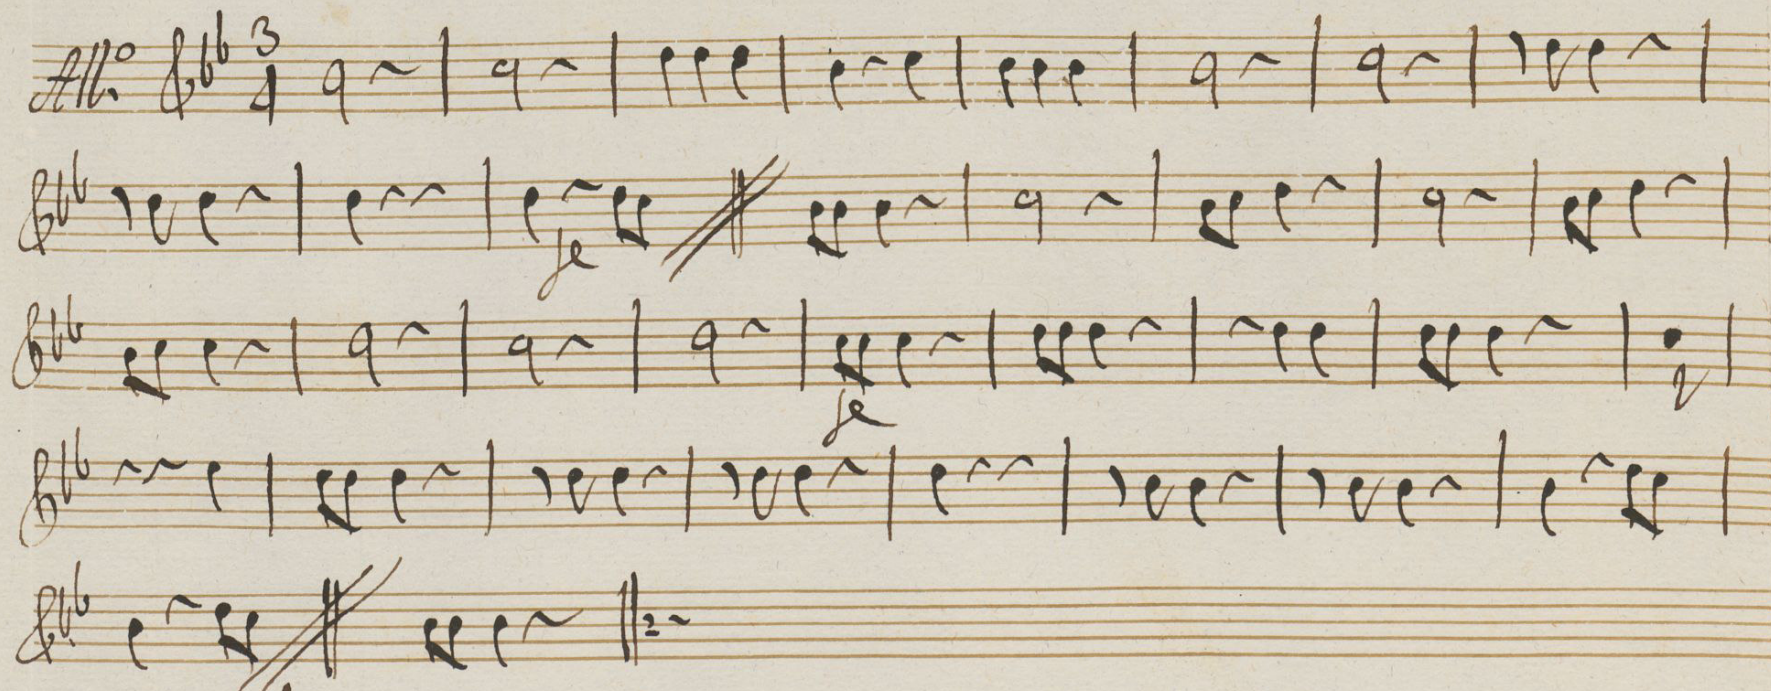 All.o 3 4
fe
fe
2